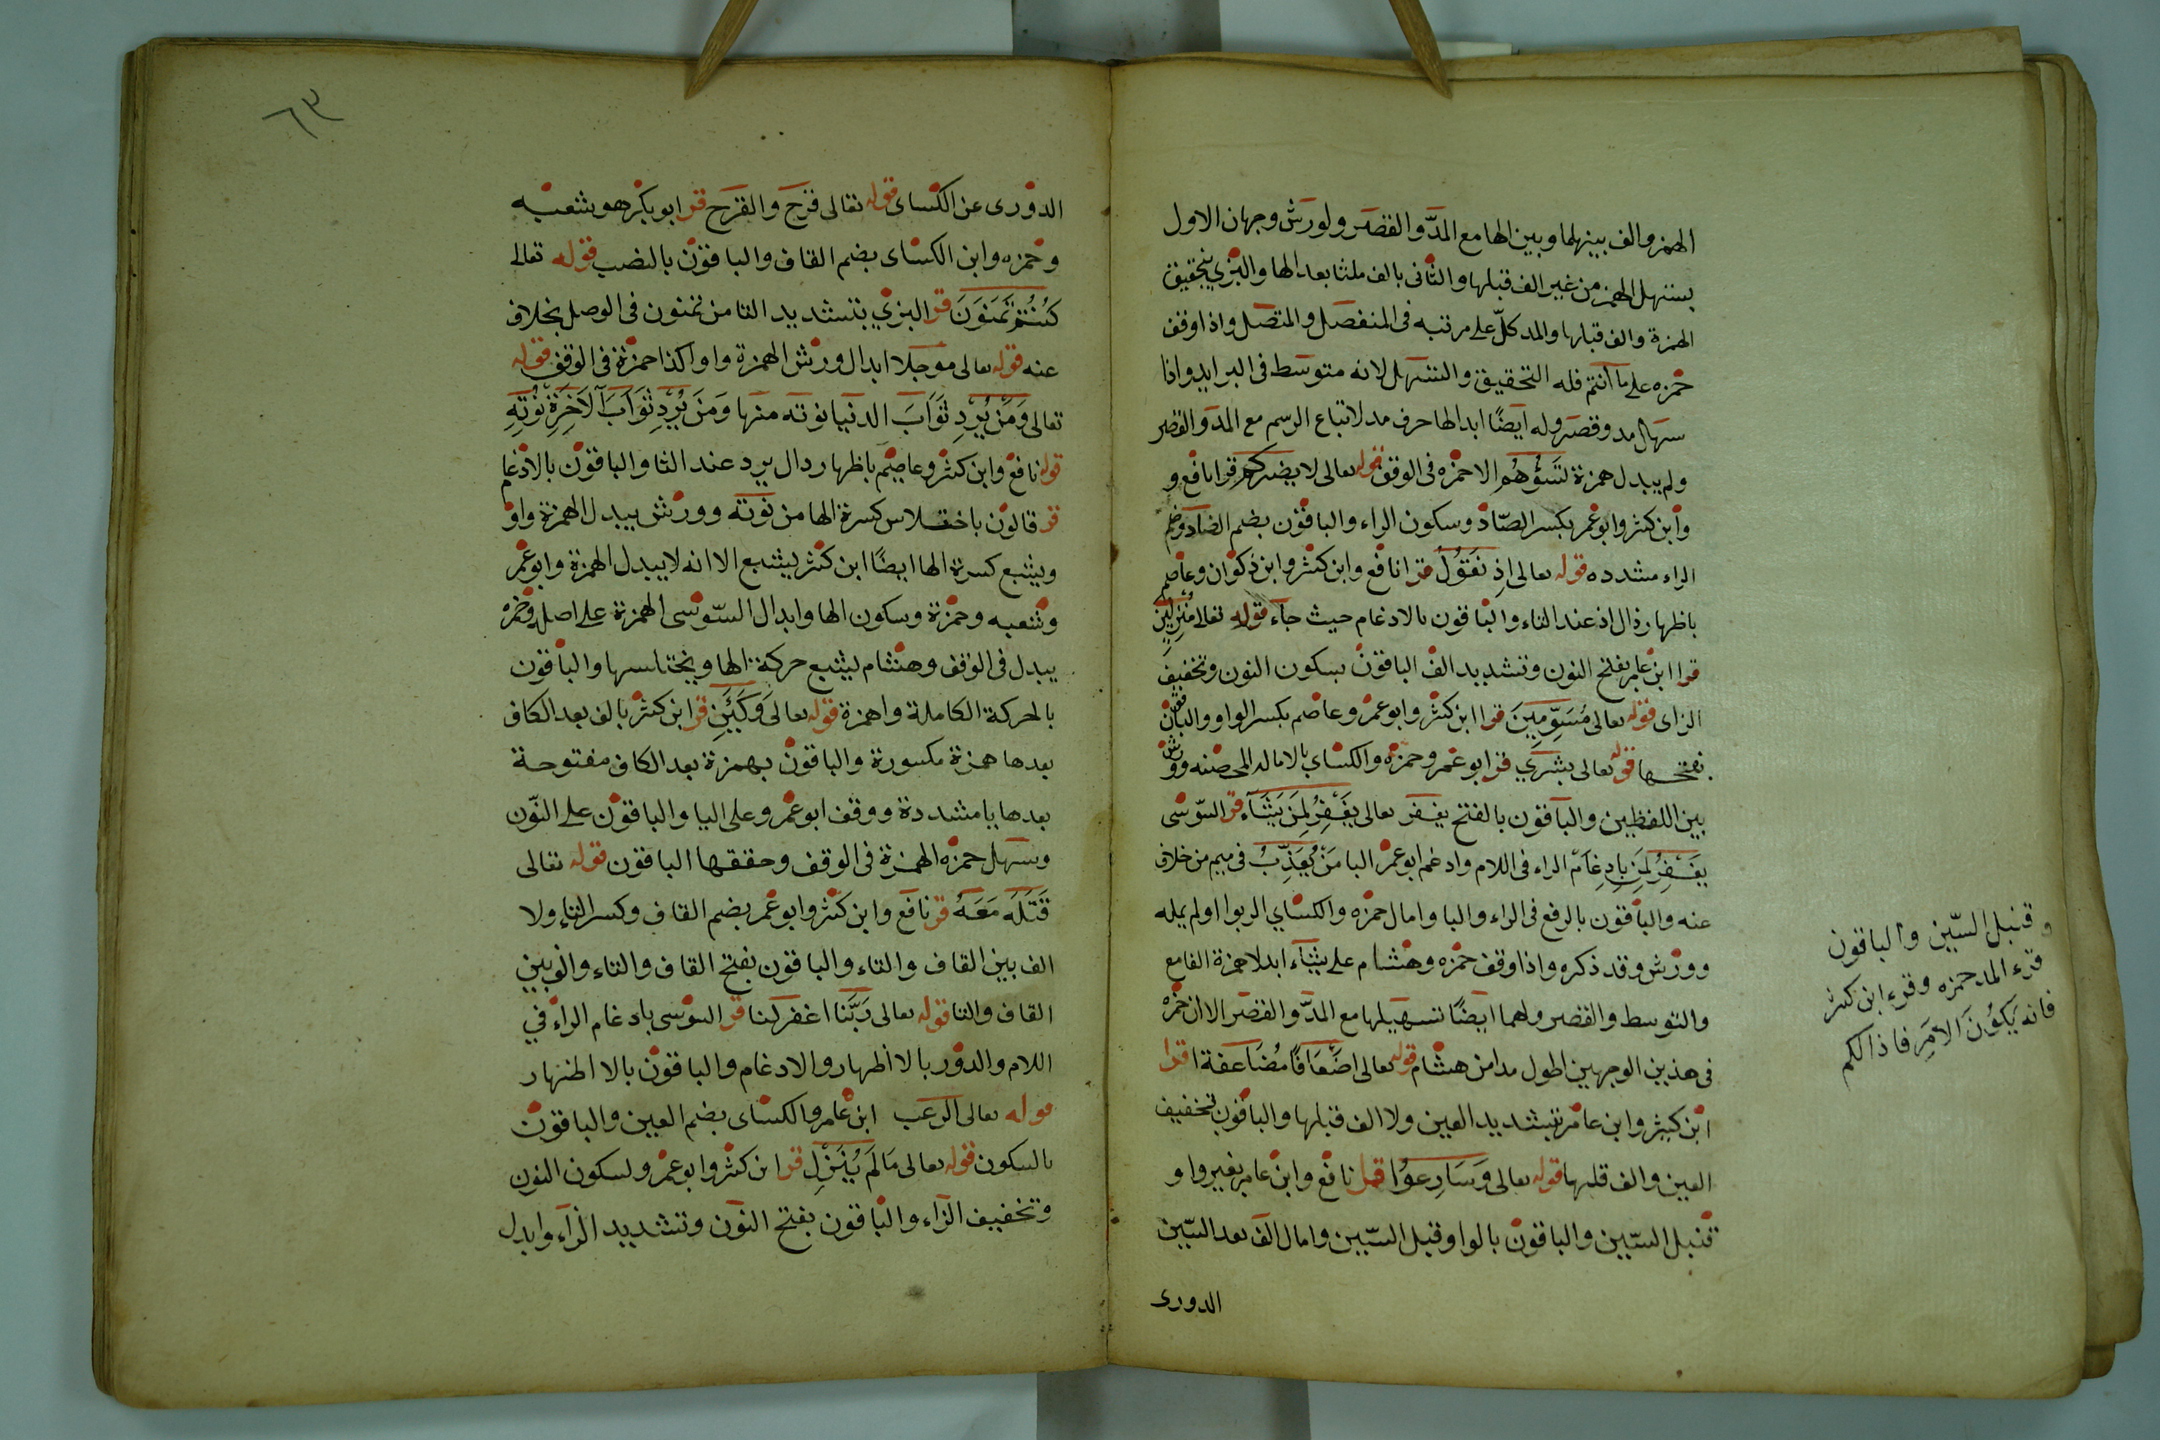 الهمز والف بينهما وبين الها مع المدّ والقصر ولورش وجهان الاول
بستهل الهمز من غير الف قبلها والثانى بالف ملثا بعد الها والبزي بتحقيق
الهمزة والف قبلها والمد كلّ على مرتبه فى المنفصل والمتصل واذا وقف
حمزه على ها انتم فله التحقيق والتسهل لانه متوسط فى البرايد واذا
سهل مد وقصر وله ايضًا ابدالها حرف مد لاتباع الرسم مع المد والقصر
ولم يبدل همزة تَسُؤْهُم الا حمزه فى الوقف قوله تعالى لا يضركم قرا نافع و
وابن كثر وابو عمر بكسر الصّاد وسكون الراء والباقون بضم الضاد وضم
الراء مشدده قوله تعالى اذ تَقُولُ قرا نافع وابن كثر وابن ذكوان وعاصم
باظهار ذال اذ عند التاء والباقون بالادغام حيث جاء قوله تعالى مُنزَلِينَ
قرا ابن عامر بفتح النون وتشديد الف الباقون بسكون النون وتخفيف
الزاى قوله تعالى مُسَوِّمِينَ قرا ابن كثر وابو عمر وعاصم بكسر الواو والباقون
بفتحها قوله تعالى بشري قر ابو عمر وحمزه والكساي بالاماله المحضنه وورش
بين اللفظين والباقون بالفتح يغفر تعالى يَغْفِرُ لِمَن يَشَآء قر السّوسى
يَغْفِرُ لِمَن بادغام الراء فى اللام وادغم ابو عمر البا مَن يُعَذِّبُ فى ميم من خلاف
عنه والباقون بالرفع فى الراء والبا وامال حمزه والكساي الربوا ولم يمله
وورش وقد ذكره واذا وقف حمزه وهشام على يشَآء ابدلا همزة الفا مع
والتوسط والقصر ولهما ايضًا تسهيلها مع المدّ والقصر الا ان حمزه
فى هذين الوجهين اطول مدا من هشام قوله تعالى اضعَافًا مُضَاعفة ا قرا
ابن كثر وابن عامر بتشديد العين ولا الف قبلها والباقون بتخفيف
العين والف قلبها قوله تعالى وَسَارِعوُا قرا نافع وابن عامر بغير واو
قنبل السّين والباقون بالواو قبل السّين وامال الف بعد السّين
الدورى
وقنبل السّين والباقون
قرء المد حمزه وقرء ابن كثر
فانه يَكوُنَ الامَرِ فاذالكم
٦٣
الدورى عن الكساى قوله تعالى قرح والقرح قر ابو بكر هو شعبه
وحمزه وابن الكساى بضم القاف والباقون بالنصب قوله تعالى
كُنْتُم تَمَنَوْنَ قر البزي بتشديد التا من تمنون فى الوصل بخلاف
عنه قوله تعالى موجلا ابدال ورش الهمزة واوا كذا حمزة فى الوقف قوله
تعالى وَمَنْ يُرِدِ ثَوَابَ الدنيا نوته منها وَمَنْ يُرِدِ ثَوَابَ الآخِرَةِ نُوْتِهِ
قوله نافع وابن كثر وعاصم باظهار دال يرد عند الثا والباقون بالادغام
قر قالون باختلاس كسرة الها من نوته وورش يبدل الهمزة واو
ويشبع كسرة الها ايضًا ابن كثر يشبع الا انه لا يبدل الهمزة وابو عمر
وشعبه وحمزة وسكون الها وابدال السّوسى الهمزة على اصله وحمزه
يبدل فى الوقف وهشام يشبع حركة الها ويختلسها والباقون
بالحركة الكاملة واهمزة قوله تعالى وَكَيَّنِ قر ابن كثر بالف بعد الكاف
بعدها همزة مكسورة والباقون بهمزة بعد الكاف مفتوحة
بعدها يا مشددة ووقف ابو عمر وعلى اليا والباقون على النّون
وسهل حمزه الهمزة فى الوقف وحققها الباقون قوله تعالى
قَتَلَه مَعَهُ قر نافع وابن كثر وابو عمر بضم القاف وكسر التاء ولا
الف بين القاف والتاء والباقون بفتح القاف والتاء والف بين
القاف والتا قوله تعالى رَبَّنَا اغفر لَنا قر السوسى بادغام الراء في
اللام والدور بالا ظهار والادغام والباقون بالا اظهار
قوله تعالى الرعب ابن عامر والكساى بضم العين والباقون
بالسكون قوله تعالى مَا لَم يُنَزِّل قر ابن كثر وابو عمر ولسكون النون
وتخفيف الزاء والباقون بفتح النون وتشديد الزاء وابدل